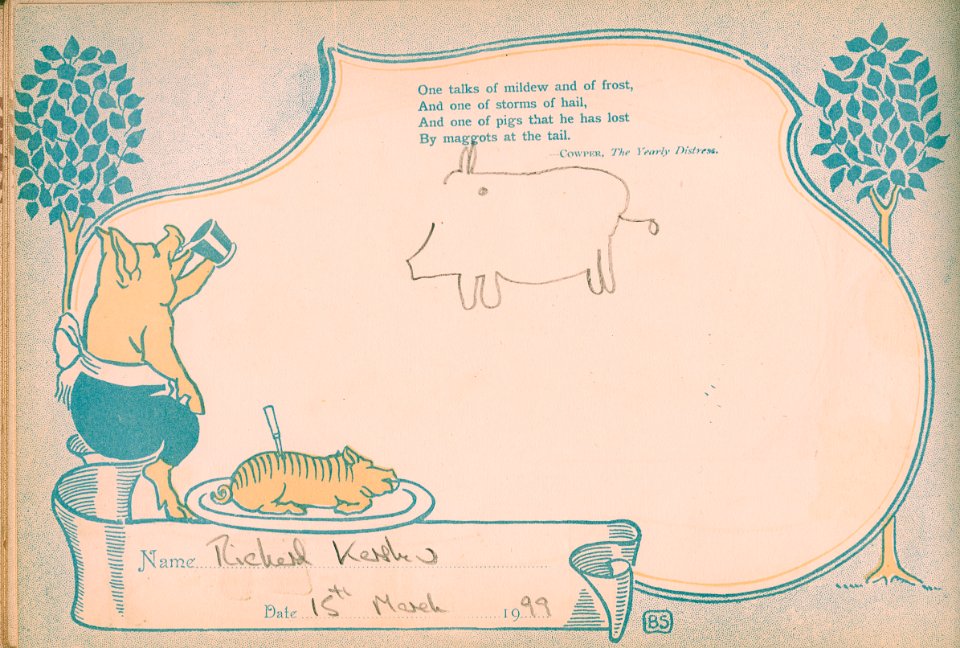 One talks of mildew and of frost,
And one of storms of hail,
And one of pigs that he has lost
By maggots at the tail.
—COWPER, The Yearly Distress.
Name Richard
Date 15th March 1999
BS